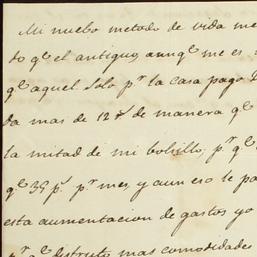 Mi nuebo metodo de vida me
do q.e el antiguo, aunq.e me es
q.e aquel solo p.r la casa pago
da mas de 12 r.s de manera q.e
la mitad de mi bolsillo; p.r q.e
q.e 35 p.s p.r mes, y aun eso le pa
esta aumentacion de gastos yo
p.r q.e disfruto mas comodidades